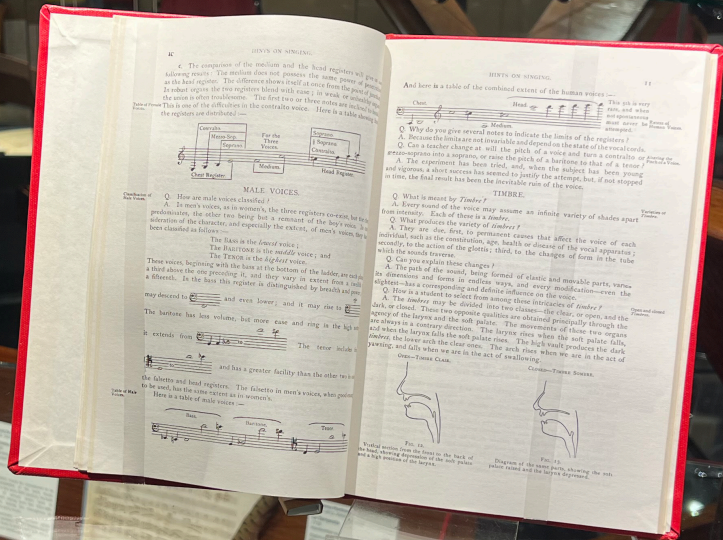 HINTS ON SINGING.
c. The comparison of the medium and the head registers will give us
following results: The medium does not possess the same power
as the head register. The difference shows itself at once from the point of
In robust organs the two registers blend with ease; in weak or unhealthy
the union is often troublesome. The first two or three notes are inclined to
Table of Female Voices.
This is one of the difficulties in the contralto voice. Here is a table showing
the registers are distributed:—
Contralto
Mezzo-Sop.
Soprani
For the
Three
Voices.
Soprano
Soprano
Contralto
Chest Register
Medium.
Head Register
MALE VOICES.
Classification of Male Voices.
Q. How are male voices classified?
A. In men's voices, as in women's, the three registers co-exist, but the
predominates, the other two being but a remnant of the boy's voice.
sideration of the character, and especially the extent, of men's voices, they
been classified as follows:—
The BASS is the lowest voice;
The BARITONE is the middle voice; and
The TENOR is the highest voice.
These voices, beginning with the bass at the bottom of the ladder, are
a third above the one preceding it, and they vary in extent from a
a fifteenth. In the bass this register is distinguished by breadth and
may descend to
and even lower; and it may rise to
The baritone has less volume, but more ease and ring in the high
it extends from
The tenor
and has a greater facility than the other two
the falsetto and head registers. The falsetto in men's voices, when
to be used, has the same extent as in women's.
Table of Male Voices.
Here is a table of male voices:—
Bass.
Baritone.
Tenor.
HINTS ON SINGING.
11
And here is a table of the combined extent of the human voices:—
Chest.
Head.
Medium.
This 8th is very
rare, and when
not spontaneous
must never be
attempted.
Q. Why do you give several notes to indicate the limits of the registers?
A. Because the limits are not invariable and depend on the state of the vocal cords.
Q. Can a teacher change at will the pitch of a voice and turn a contralto or
mezzo-soprano into a soprano, or raise the pitch of a baritone to that of a tenor?
A. The experiment has been tried, and, when the subject has been young
and vigorous, a short success has seemed to justify the attempt, but, if not stopped
in time, the final result has been the inevitable ruin of the voice.
TIMBRE.
Q. What is meant by Timbre?
A. Every sound of the voice may assume an infinite variety of shades apart
Varieties of Timbre.
from intensity. Each of these is a timbre.
Q. What produces the variety of timbres?
A. They are due, first, to permanent causes that affect the voice of each
individual, such as the constitution, age, health or disease of the vocal apparatus;
secondly, to the action of the glottis; third, to the changes of form in the tube
which the sounds traverse.
Q. Can you explain these changes?
A. The path of the sound, being formed of elastic and movable parts, varies
its dimensions and forms in endless ways, and every modification—even the
slightest—has a corresponding and definite influence on the voice.
Q. How is a student to select from among these intricacies of timbre?
A. The timbres may be divided into two classes—the clear, or open, and the
Open and closed Timbres.
dark, or closed. These two opposite qualities are obtained principally through the
agency of the larynx and the soft palate. The movements of those two organs
are always in a contrary direction. The larynx rises when the soft palate falls,
and when the larynx falls the soft palate rises. The high vault produces the dark
timbres, the lower arch the clear ones. The arch rises when we are in the act of
yawning, and falls when we are in the act of swallowing.
OPEN—TIMBRE CLAIR.
CLOSED—TIMBRE SOMBRE.
FIG. 12.
Vertical section from the front to the back of
the head, showing depression of the soft palate
and a high position of the larynx.
FIG. 13.
Diagram of the same parts, showing the soft
palate raised and the larynx depressed.